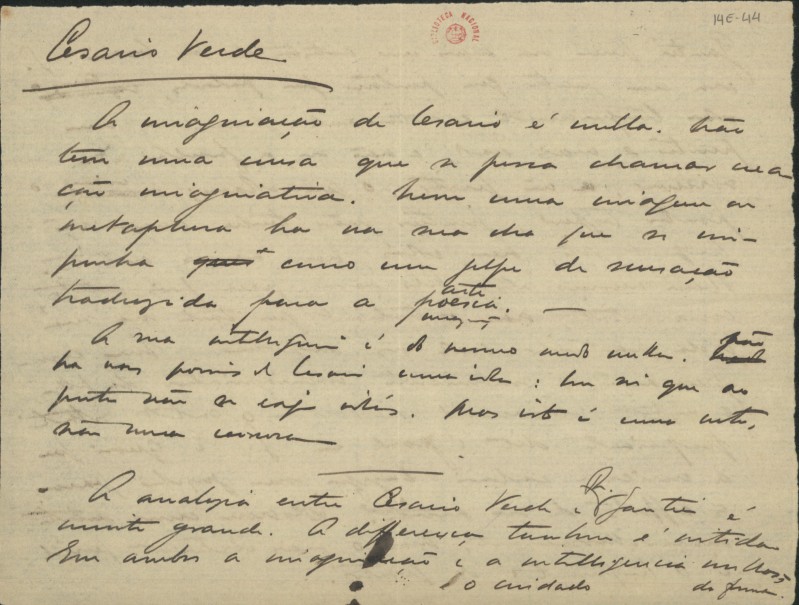 14E-44
BIBLIOTECA NACIONAL
Cesario Verde
A imaginação de Cesario é nulla. Não
tem uma cousa que se possa chamar crea
ção imaginativa. Nem uma imagem ou
metaphora ha na sua obra que se im-
ponha como um golpe de sensação
traduzida para a poesia.
arte
A sua intelligencia é do mesmo modo nulla. Não
ha nos poemas de Cesario uma idéa: bem sei que ao
poeta não se exige idéas. Mas isto é uma nota,
não uma censura
A analogia entre Cesario Verde e é
muito grande. A differença tambem é nitida
Em ambos a imaginação e a intelligencia nullas
o cuidado da forma.